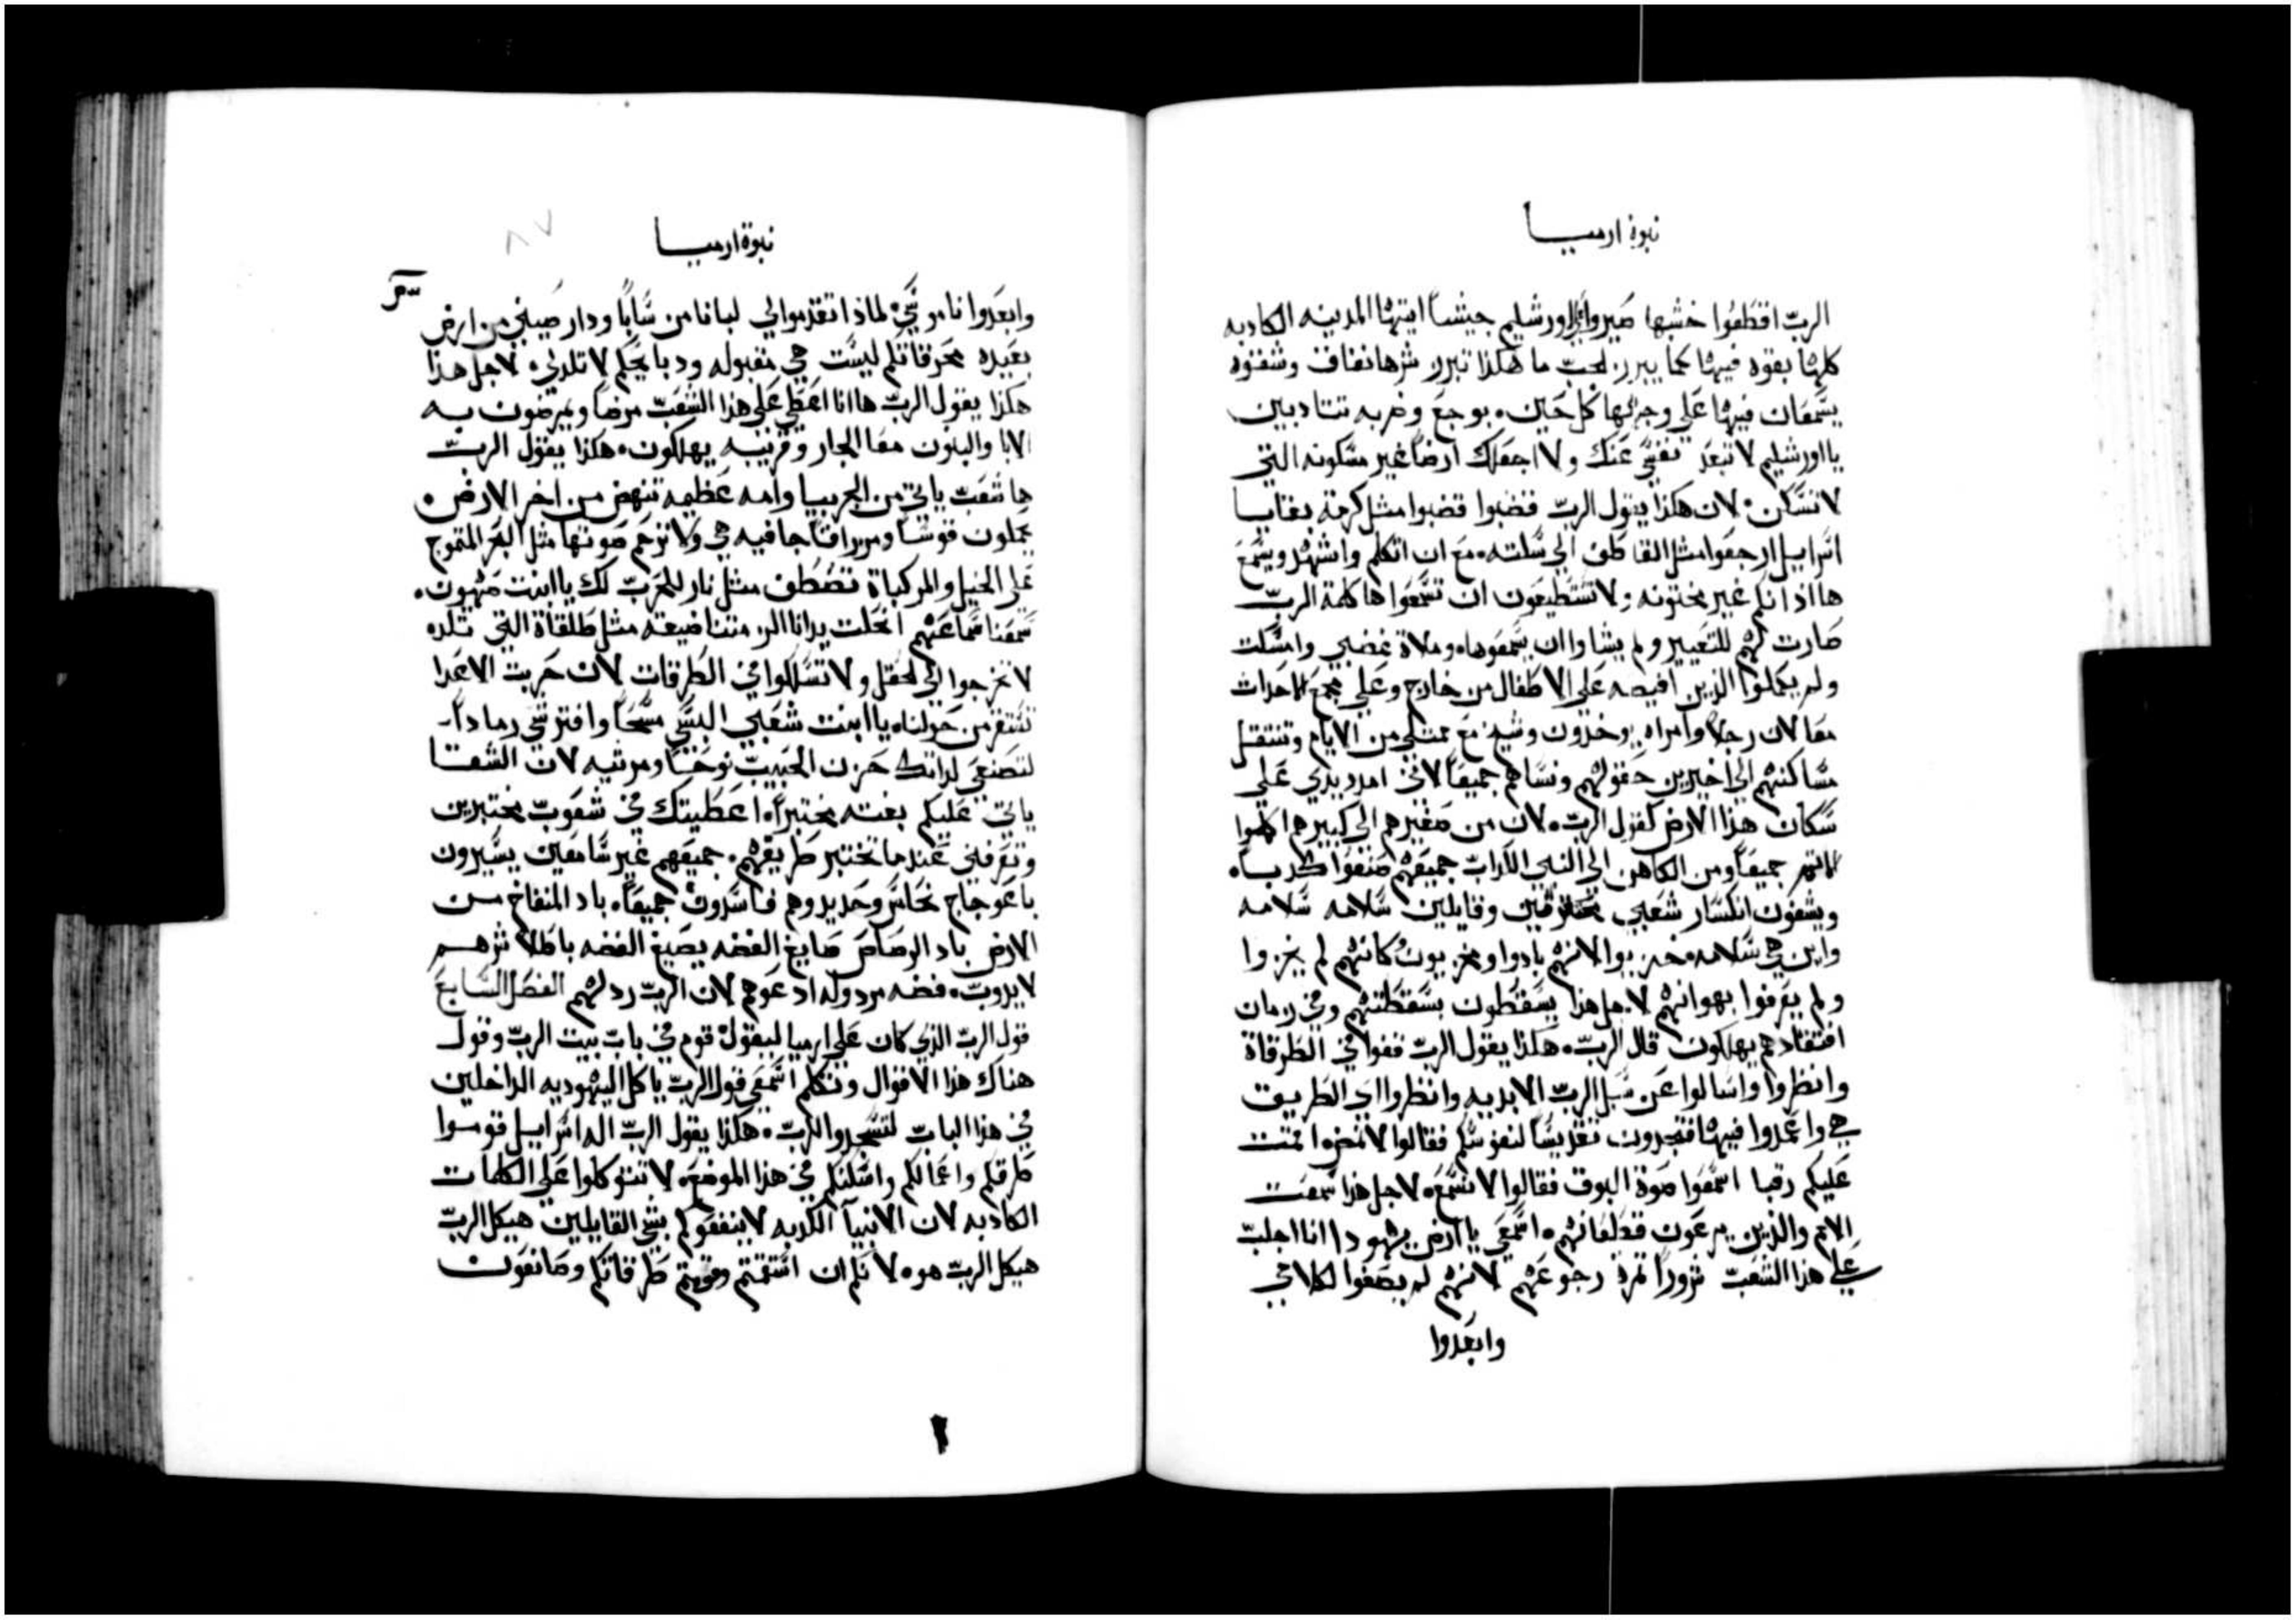 نبوة ارميا
الرب اقطعوا خشبها صيروا على اورشليم جيشاً ايتها المدينه الكادبه
كلها بقوه فيها كما يبرر لجب ما هكذا تبرر شرها نفاق وشقوه
يسمعان فيها على وجهها كل حين. بوجع وضربه تتادبين
يا اورشليم لا تبعد نفسي عنك ولا اجعلك ارضاً غير مسكونه التي
لا تسكن. لان هكذا يقول الرب قضبوا قضبوا مثل كرمة بقايا
اسراييل ارجعوا مثل القاطف الي سلته. مع ان اتكلم واشهد ويسمع
ها اذانكم غير مختونه ولا تستطيعون ان تسمعوا ها كلمة الرب
صارت لهم للتعيير ولم يشاوا ان يسمعوها. وملاة غضبي وامسكت
ولم يكملوا الذين افيضه على الاطفال من خارج وعلى مجمع الاحداث
معا لان رجلاً وامراه يوخدون وشيخ مع ممتلي من الايام وتنتقل
مساكنهم الى اخيرين حقولهم ونساهم جميعاً لانني امد يدي على
سكان هذا الارض كقول الرب. لان من صغيرهم الى كبيرهم اكملوا
جميعاً ومن الكاهن الى النبي الكداب جميعهم صنعوا كدباً.
ويشفون انكسار شعبي محتقرين وقايلين سلامه سلامه
واين هي سلامه. خزيوا لانهم بادوا ومخزيون كانهم لم يخزوا
ولم يعرفوا بهوانهم لاجل هذا يسقطون بسقطتهم وفي زمان
افتقادهم يهلكون قال الرب. هكذا يقول الرب قفوا في الطرقاة
وانظروا واسالوا عن سبل الرب الابديه وانظروا اي الطريق
هي واعمدوا فيها فتجدون تقديساً لنفوسكم فقالوا لا نمضي. اقمت
عليكم رقبا اسمعوا صوة البوق فقالوا لا نسمع. لاجل هذا سمعت
الامم والذين يرعون قطعانهم. اسمعي يا ارض يهودا انا اجلب
على هذا الشعب شروراً ثمرة رجوعهم لانهم لم يصغوا لكلامي
وابعدوا
نبوة ارميا
٨٧
وابعدوا ناموسي. لماذا تقدموا لي لبانا من سابا ودارصيني من ارض
بعيده محرقاتكم ليست هي مقبوله ودبايحكم لا تلدني. لاجل هذا
هكذا يقول الرب ها انا اعطي على هذا الشعب مرضاً ويمرضون به
الابا والبنون معا الجار وقريبه يهلكون. هكذا يقول الرب
ها شعب ياتي من الجربيا وامه عظيمه تنهض من اخر الارض.
يحملون قوساً ومزراقاً جافيه هي ولا ترحم صوتها مثل البحر المتموج
على الخيل والمركباة تصطف مثل نار للحرب لك يا ابنت صهيون.
سمعنا سماعهم انحلت يدانا الز متنا ضيقه مثل طلقاة التي تلده
لا تخرجوا الى الحقل ولا تسلكوا في الطرقات لان حربت الاعدا
تستقر من حولنا. يا ابنت شعبي البسي مسحاً وافترشي رماداً
لتصنعي لداتك حزن الحبيب نوحاً ومرثيه لان الشقا
ياتي عليكم بغته مختبراً. اعطيتك في شعوب مختبرين
وتعرفني عندما تختبر طريقهم. جميعهم غير سامعين يسيرون
باعوجاج نحاس وحديد وهم فاسدون جميعاً. باد المنفاخ من
الارض باد الرصاص صايغ الفضه يصيغ الفضه باطلا شرهم
لا يدوب. فضه مردوله ادعوهم لان الرب ردلهم الفصل السابع
قول الرب الذي كان على ارميا ليقول قوم في باب بيت الرب وقول
هناك هذا الاقوال وتتكلم اسمعي قول الرب يا كل اليهوديه الداخلين
في هذا الباب لتسجدوا للرب. هكذا يقول الرب اله اسراييل قوموا
طرقكم واعمالكم واسكنكم في هذا الموضع. لا تتوكلوا على الكلمات
الكادبه لان الانبيآ الكدبه لا ينفعوكم بشي القايلين هيكل الرب
هيكل الرب هو. لانكم ان استقمتم وقومتم طرقاتكم وصانعون